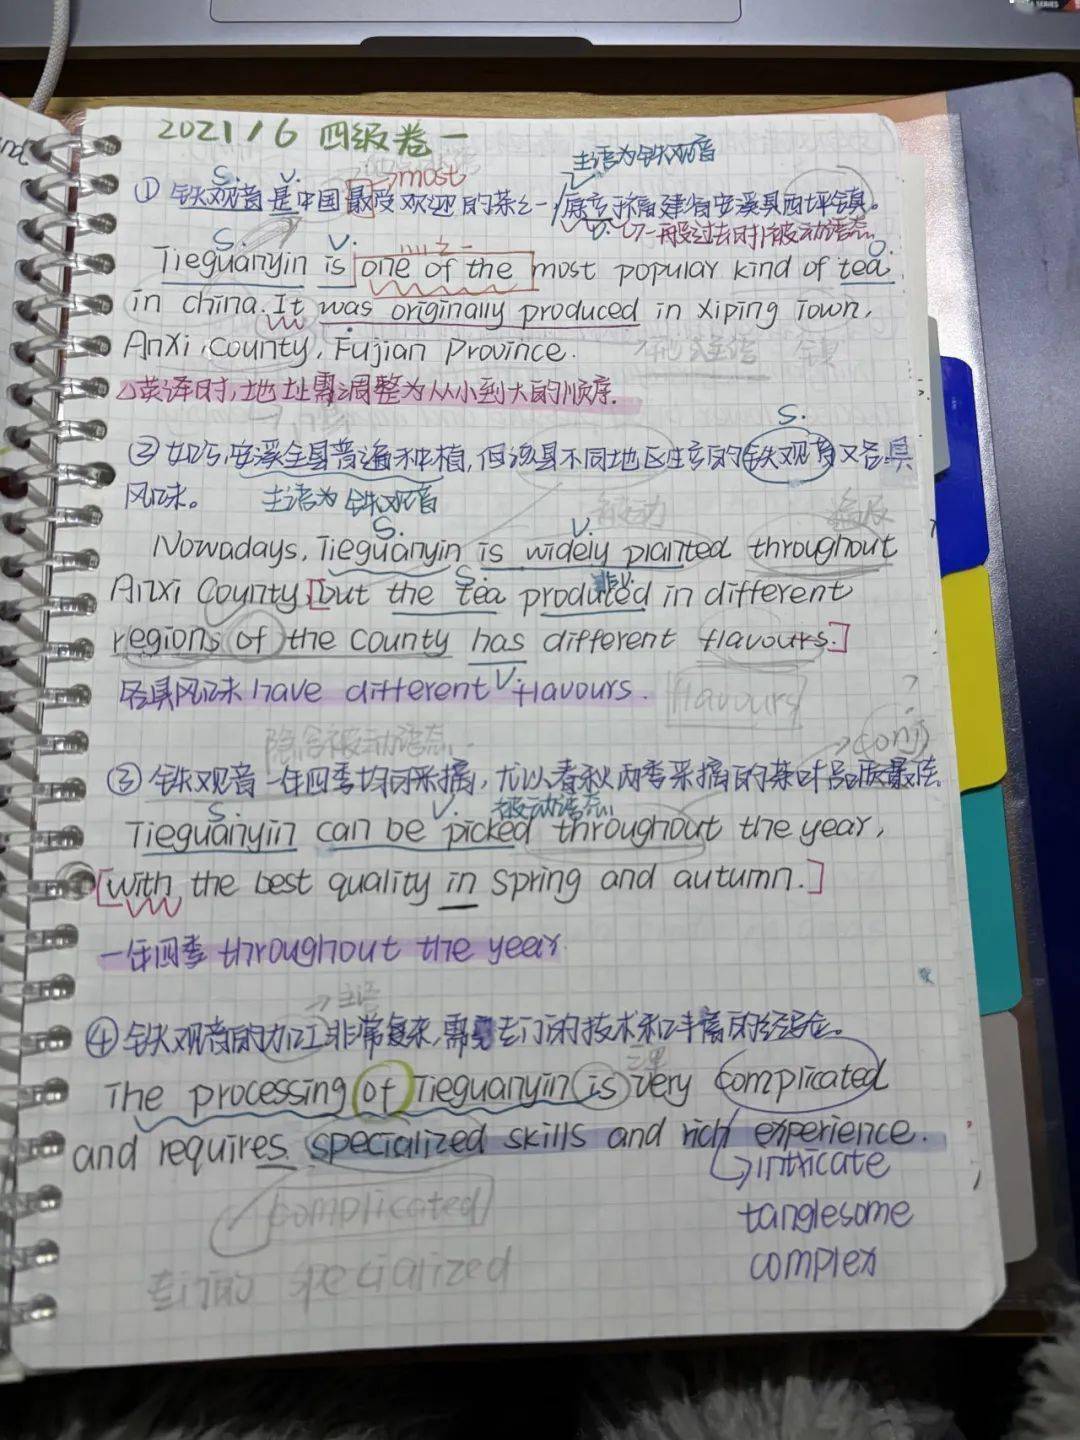 2021/6 四级卷一
主语为铁观音
S. V. →most
① 铁观音是中国最受欢迎的茶之一,原产于福建省安溪县西坪镇。
S. V. V.一般过去时被动语态
Tieguanyin is one of the most popular kind of tea
in china. It was originally produced in Xiping Town,
Anxi County, Fujian Province. 镇
△英译时,地址需调整为从小到大的顺序.
S.
② 如今,安溪全县普遍种植,但该县不同地区生产的铁观音又各具
风味。 主语为铁观音
S. 被动 V.
Nowadays, Tieguanyin is widely planted throughout
S. 非V.
Anxi County, but the tea produced in different
regions of the county has different flavours.
V.
各具风味 have different flavours. flavours
隐含被动语态 →conj ?
③ 铁观音一年四季均可采摘, 尤以春秋两季采摘的茶叶品质最佳.
S. V. 被动语态
Tieguanyin can be picked throughout the year,
with the best quality in Spring and autumn.
一年四季 throughout the year.
→主语
④ 铁观音的加工非常复杂,需要专门的技术和丰富的经验。
三单
The processing of Tieguanyin is very complicated
and requires specialized skills and rich experience.
→intricate
complicated
tanglesome
complex
专门的 specialized